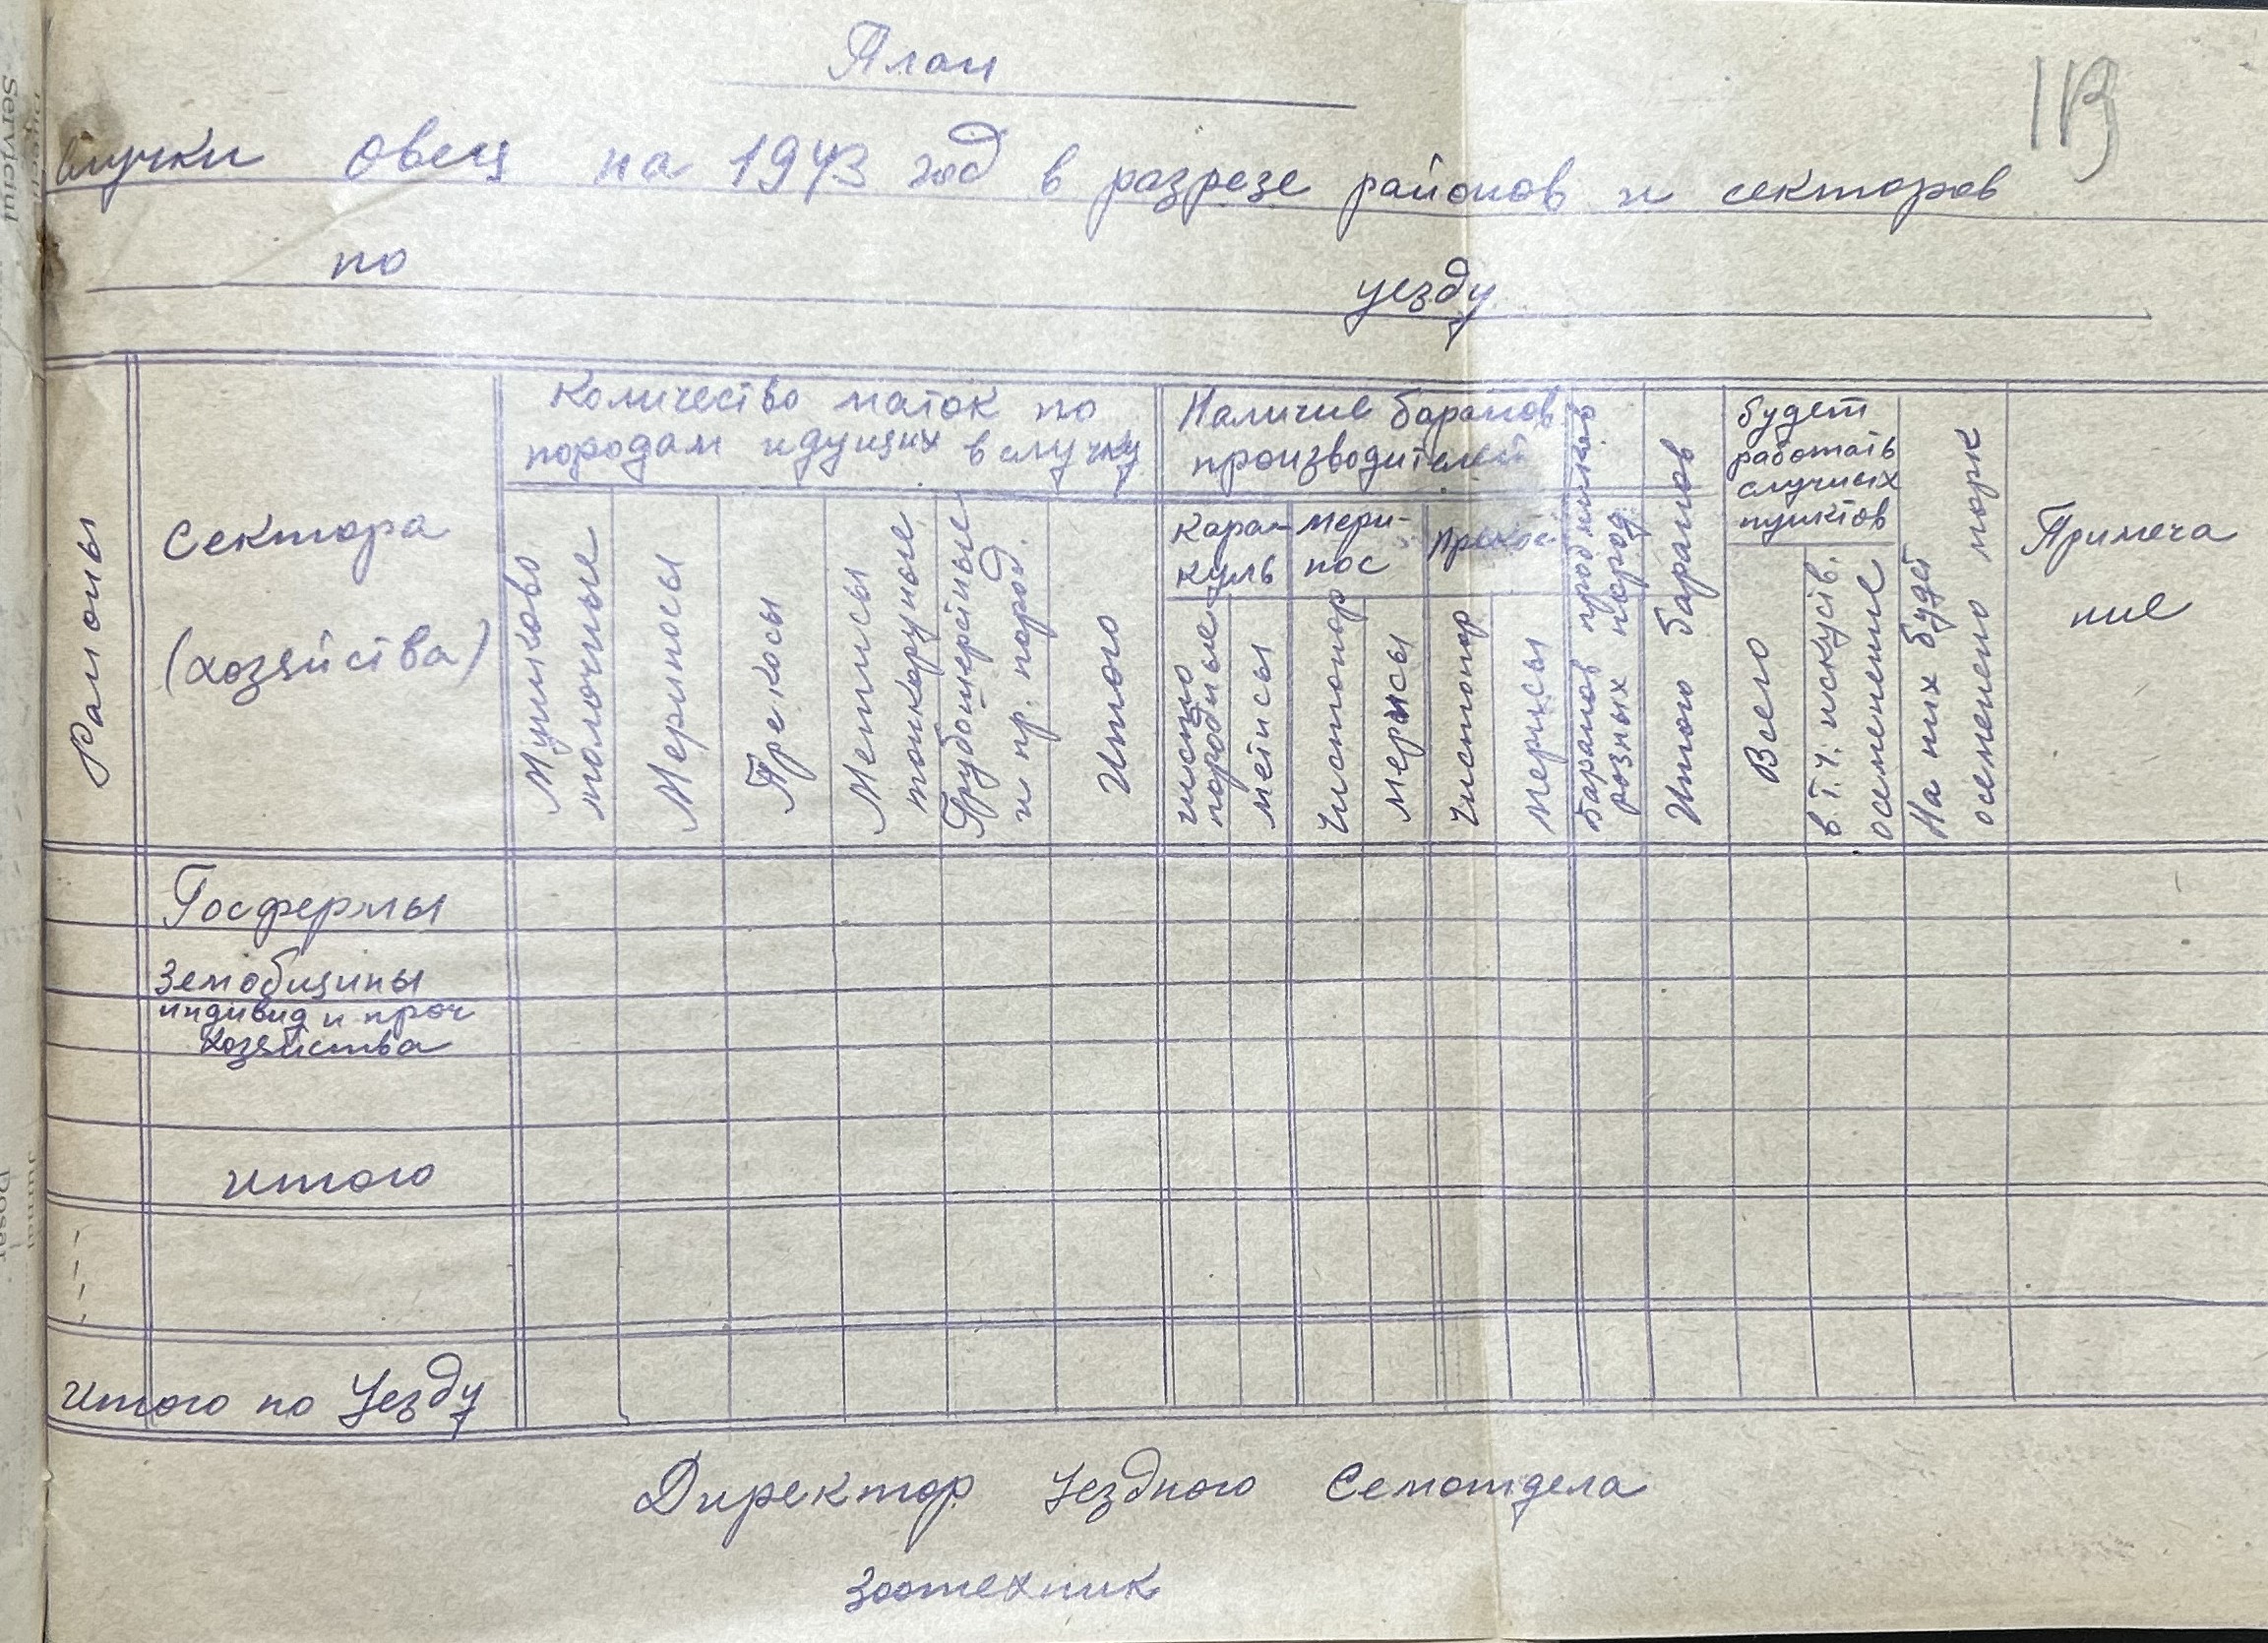 План
113
случки овец на 1943 год в разрезе районов и секторов
по уезду
Районы
Сектора
(хозяйства)
Количество маток по
породам идущих в случку
Цушково
молочные
Мериносы
Прекосы
Метисы
тонкорунные
Грубошерстные
и пр. пород.
Итого
Наличие баранов
производителей
Кара-
куль
мери-
нос
Прекос
чисто
породные
метисы
Чистопор
мерисы
Чистопор
мерисы
баранов пробников
разных пород.
Итого баранов
будет
работать
случных
пунктов
Всего
в т.ч. искуств.
осеменение
На них будет
осеменено морк
Примеча
ние
Госфермы
Земобщины
индивид и проч
хозяйства
итого
итого по Уезду
Директор Уездного Семотдела
Зоотехник
Serviciul